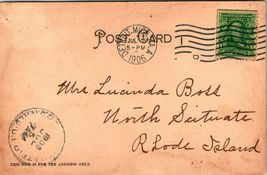 POST CARD
JUL
5-PM
1906
Mrs Lucinda Boss
North Scituate
Rhode Island
THIS SIDE IS FOR THE ADDRESS ONLY.